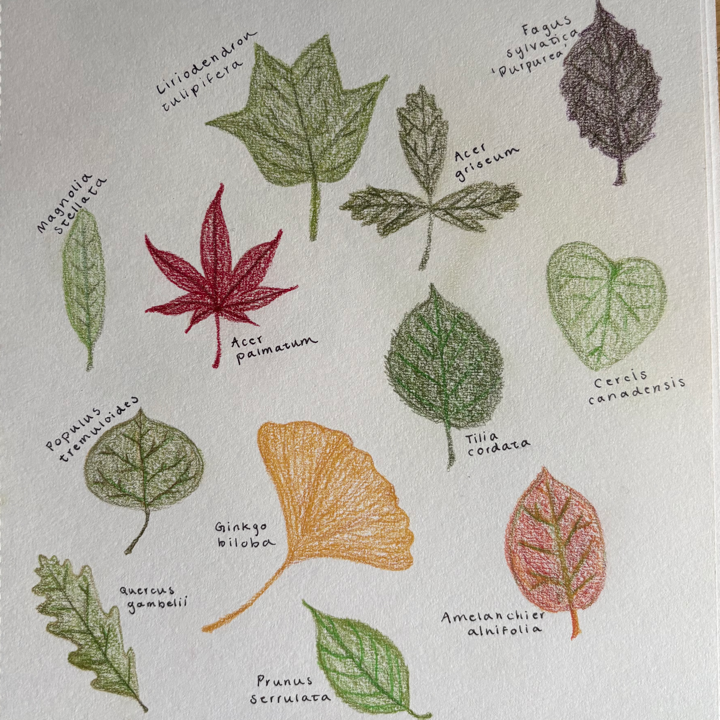 Liriodendron
tulipifera
Fagus
sylvatica
'Purpurea'
Acer
griseum
Magnolia
stellata
Acer
palmatum
Cercis
canadensis
Populus
tremuloides
Tilia
cordata
Ginkgo
biloba
Quercus
gambelii
Amelanchier
alnifolia
Prunus
serrulata